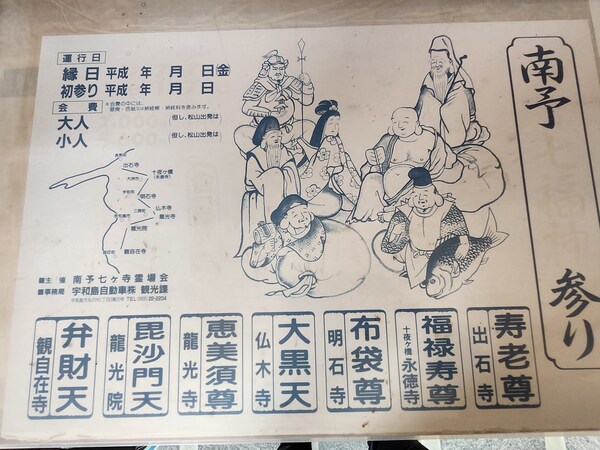 南予
参り
運行日
縁日 平成 年 月 日㊎
初参り 平成 年 月 日
会費 *会費の中には、
昼食・色紙又は納経帳・納経料を含みます。
大人 但し、松山出発は
小人 但し、松山出発は
出石寺
十夜ヶ橋
(永徳寺)
明石寺
仏木寺
龍光寺
龍光院
観自在寺
■主 催 南予七ヶ寺霊場会
■事務局 宇和島自動車㈱ 観光課
寿老尊
出石寺
福禄寿尊
十夜ヶ橋 永徳寺
布袋尊
明石寺
大黒天
仏木寺
恵美須尊
龍光寺
毘沙門天
龍光院
弁財天
観自在寺